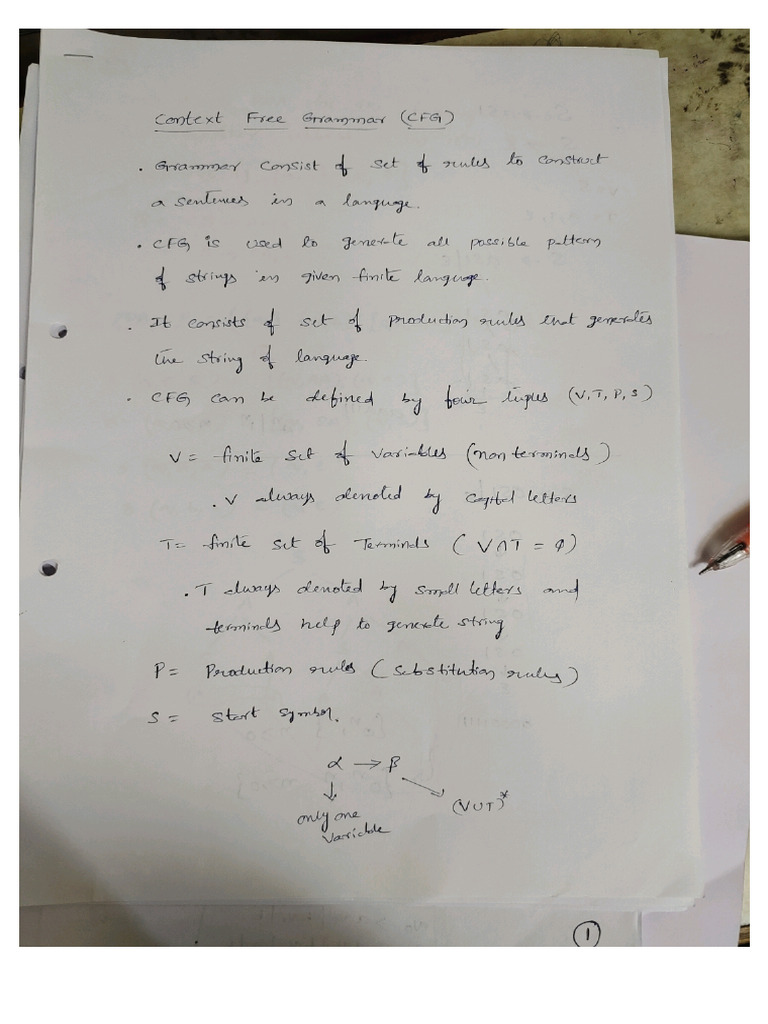 Context Free Grammar (CFG)
. Grammer consist of set of rules to construct
a sentences in a language.
. CFG is used to generate all possible pattern
of strings in given finite language.
. It consists of set of production rules that generates
the string of language.
. CFG can be defined by four tuples (V, T, P, S)
V = finite set of variables (non terminals)
. V always denoted by capital letters
T = finite set of Terminals ( V∩T = φ)
. T always denoted by small letters and
terminals help to generate string
P = Production rules (Substitution rules)
S = Start Symbol.
α → β
(V∪T)*
only one
variable
1